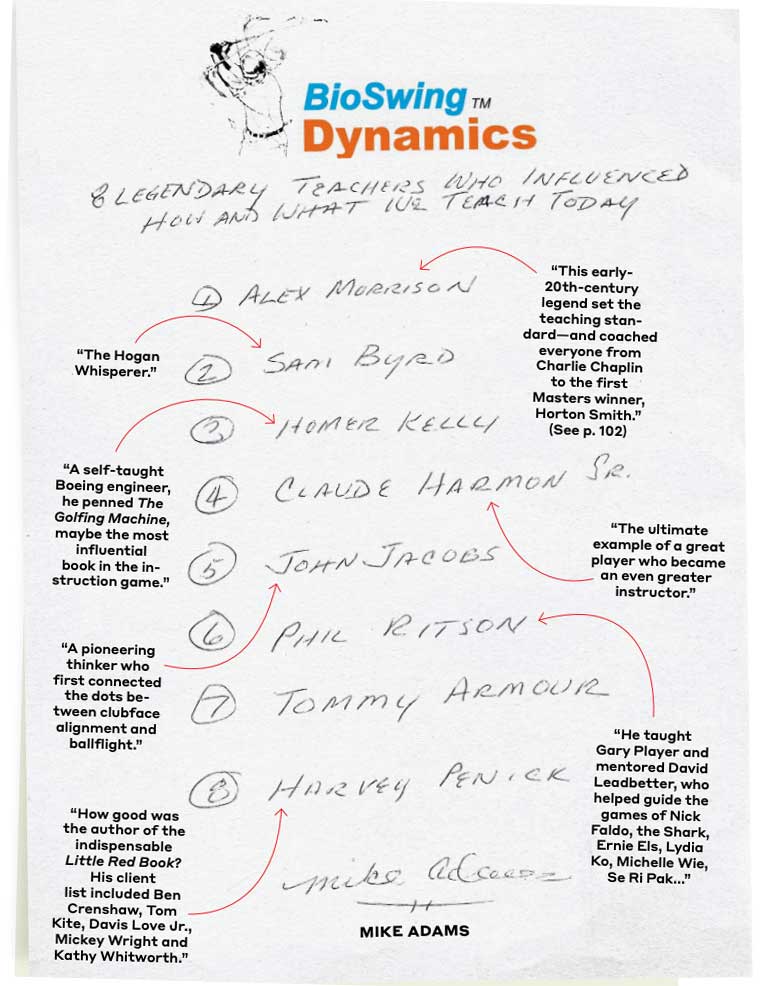 BioSwing TM
Dynamics
8 LEGENDARY TEACHERS WHO INFLUENCED
HOW AND WHAT WE TEACH TODAY
① ALEX MORRISON
“This early-
20th-century
legend set the
teaching stan-
dard—and coached
everyone from
Charlie Chaplin
to the first
Masters winner,
Horton Smith.”
(See p. 102)
“The Hogan
Whisperer.”
② SAM BYRD
③ HOMER KELLY
“A self-taught
Boeing engineer,
he penned The
Golfing Machine,
maybe the most
influential
book in the in-
struction game.”
④ CLAUDE HARMON SR.
“The ultimate
example of a great
player who became
an even greater
instructor.”
⑤ JOHN JACOBS
“A pioneering
thinker who
first connected
the dots be-
tween clubface
alignment and
ballflight.”
⑥ PHIL RITSON
“He taught
Gary Player and
mentored David
Leadbetter, who
helped guide the
games of Nick
Faldo, the Shark,
Ernie Els, Lydia
Ko, Michelle Wie,
Se Ri Pak...”
⑦ TOMMY ARMOUR
⑧ HARVEY PENICK
“How good was
the author of the
indispensable
Little Red Book?
His client
list included Ben
Crenshaw, Tom
Kite, Davis Love Jr.,
Mickey Wright and
Kathy Whitworth.”
Mike Adams
MIKE ADAMS